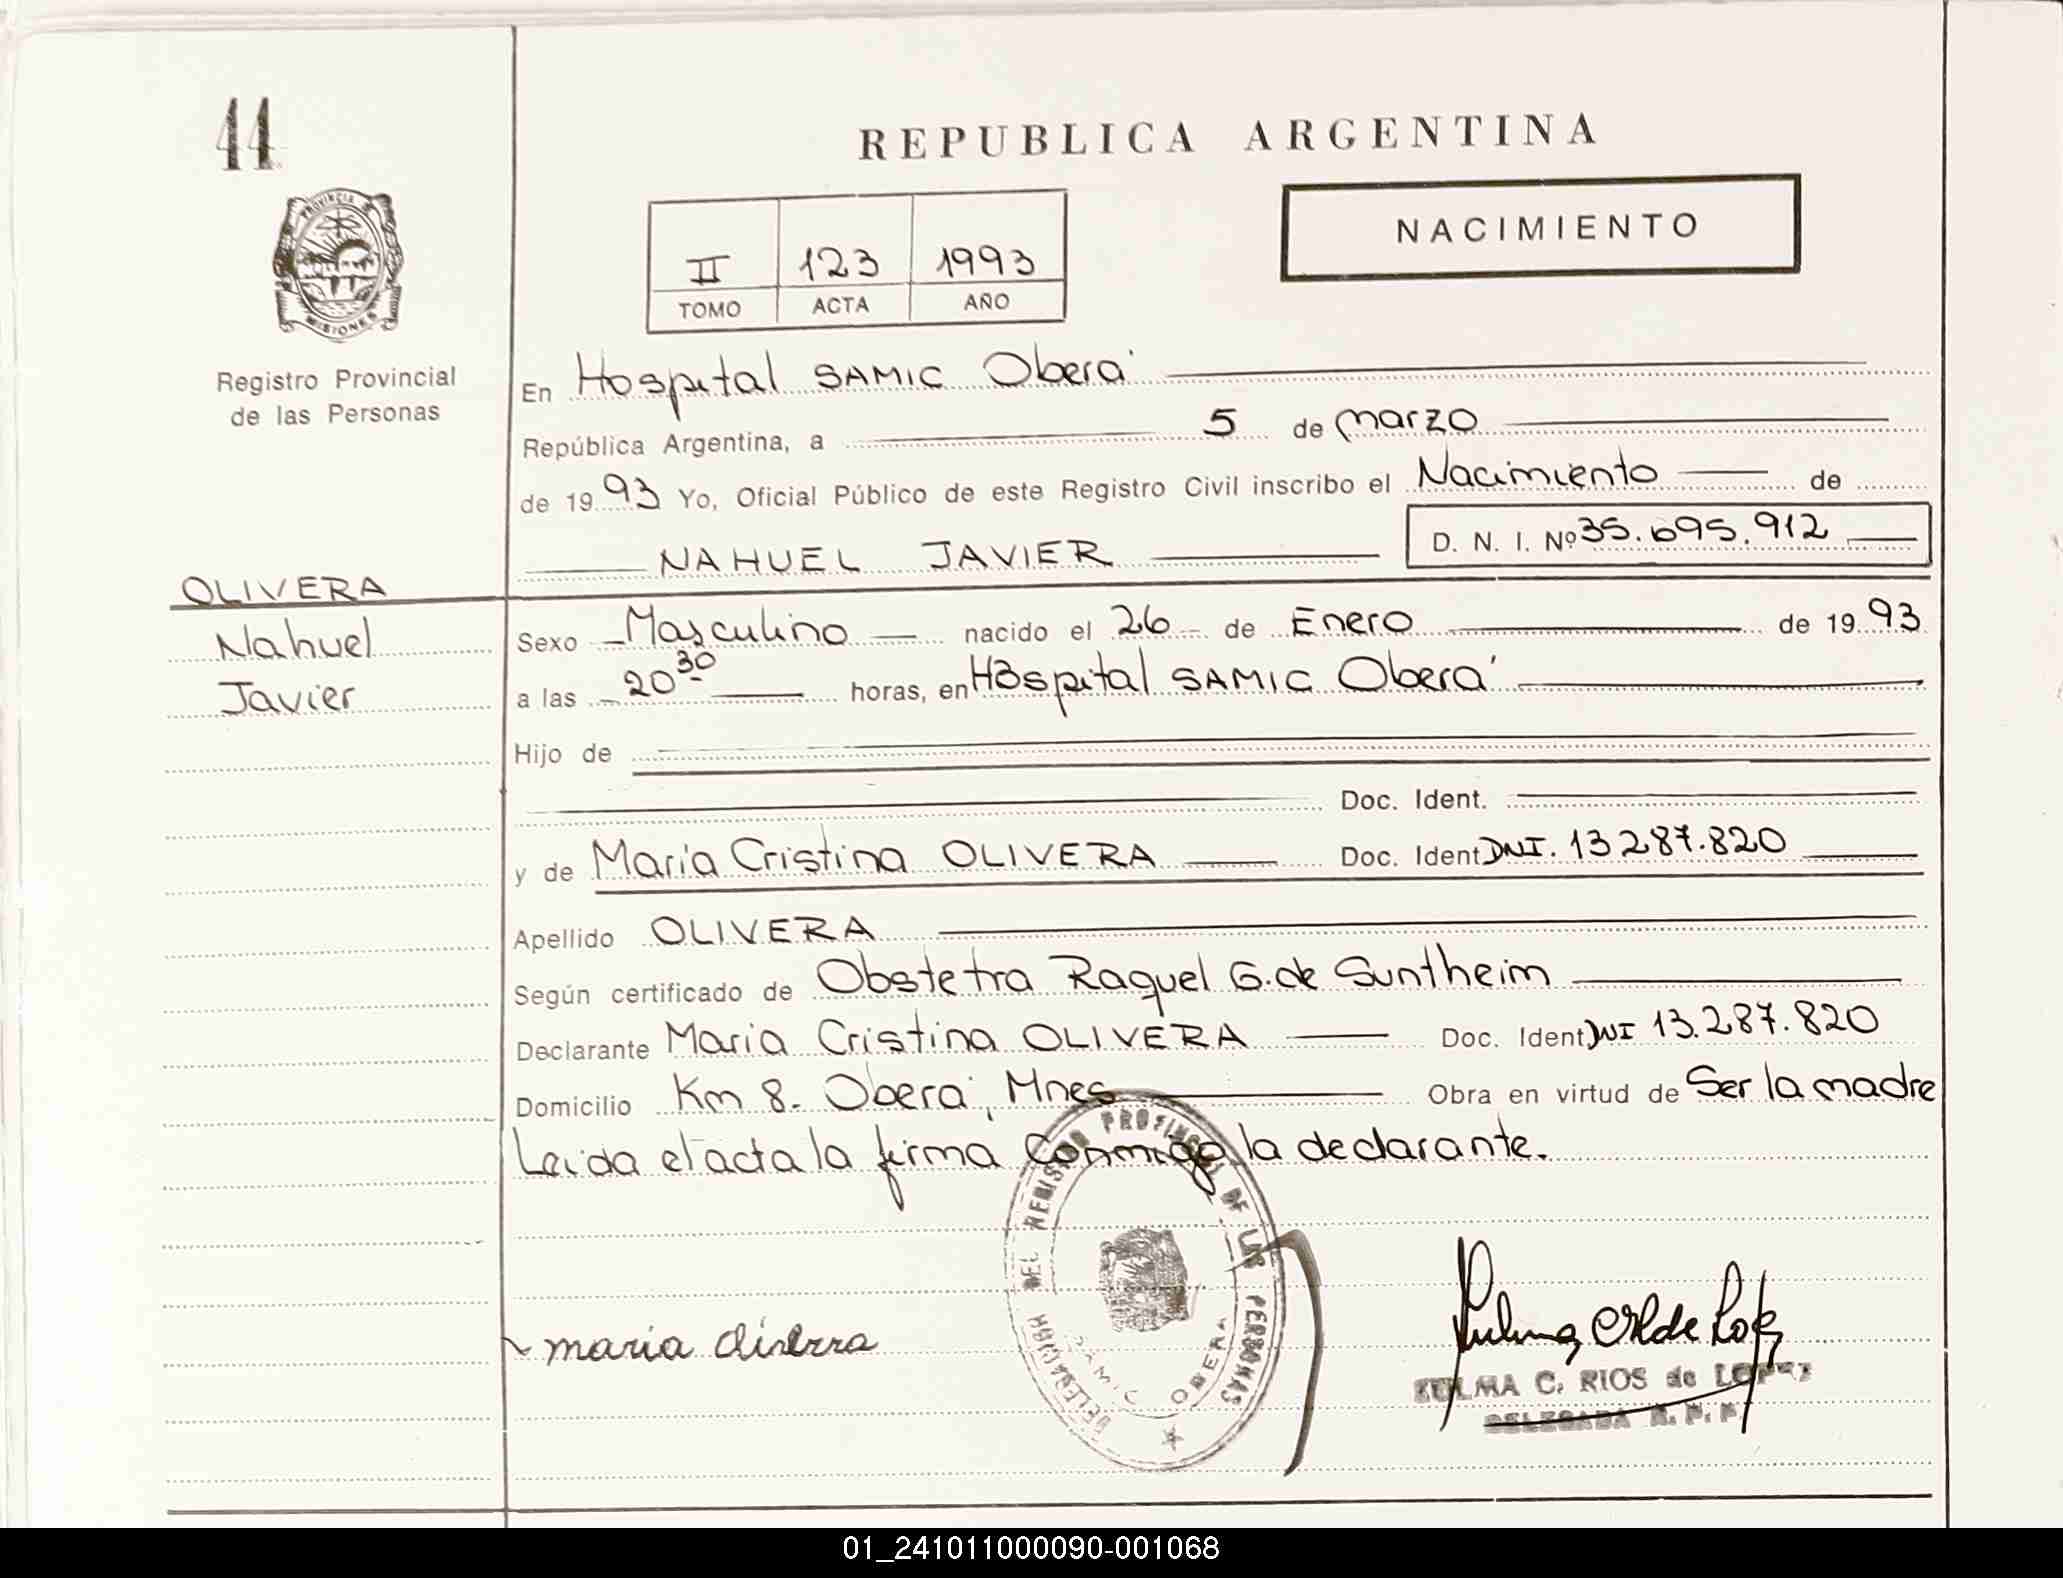 44
REPUBLICA ARGENTINA
PROVINCIA DE
MISIONES
Registro Provincial
de las Personas
II 123 1993
TOMO ACTA AÑO
NACIMIENTO
En Hospital SAMIC Oberá
República Argentina, a 5 de marzo
de 19 93 Yo, Oficial Público de este Registro Civil inscribo el Nacimiento de
NAHUEL JAVIER D. N. I. Nº 35.695.912
OLIVERA
Nahuel
Javier
Sexo Masculino nacido el 26 de Enero de 19 93
a las 20 30 horas, en Hospital SAMIC Oberá
Hijo de
Doc. Ident.
y de Maria Cristina OLIVERA Doc. Ident DNI. 13 287.820
Apellido OLIVERA
Según certificado de Obstetra Raquel G. de Suntheim
Declarante Maria Cristina OLIVERA Doc. Ident DNI 13.287.820
Domicilio Km 8. Oberá, Mnes Obra en virtud de Ser la madre
Leida el acta la firma Conmigo la declarante.
DELEGACION DEL REGISTRO PROVINCIAL DE LAS PERSONAS
SAMIC OBERA
maria oliverra
ZULMA C. RIOS de LOPEZ
DELEGADA R. P. P.
01_241011000090-001068